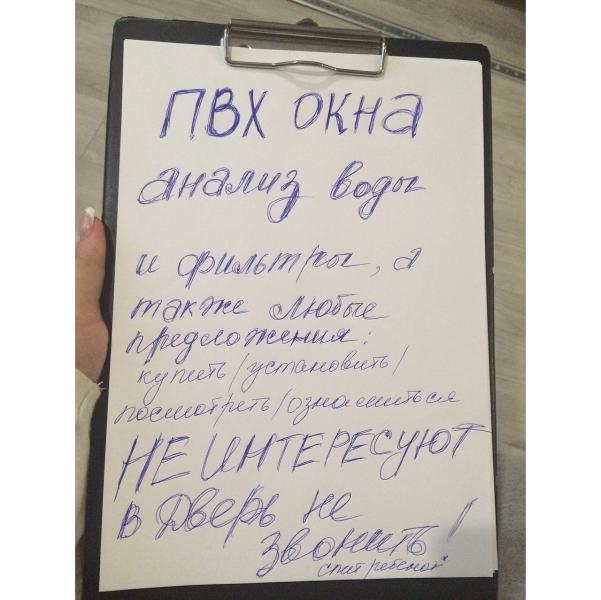 ПВХ ОКНА
анализ воды
и фильтры, а
также любые
предложения:
купить/установить/
посмотреть/ознакомиться
НЕ ИНТЕРЕСУЮТ
в дверь не
звонить!
спит ребенок